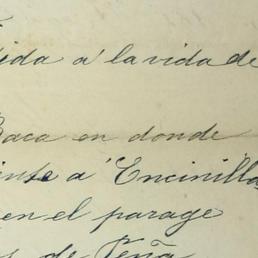 ida a' la vida de
Baca en donde
a' Encinilla
en el parage
de Peña